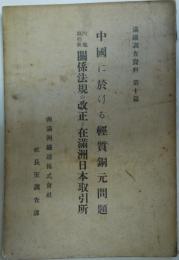 滿鐵調査資料 第十篇
中國に於ける輕質銅元問題
關係法規の改正と在滿洲日本取引所
南滿洲鐵道株式會社
社長室調査課